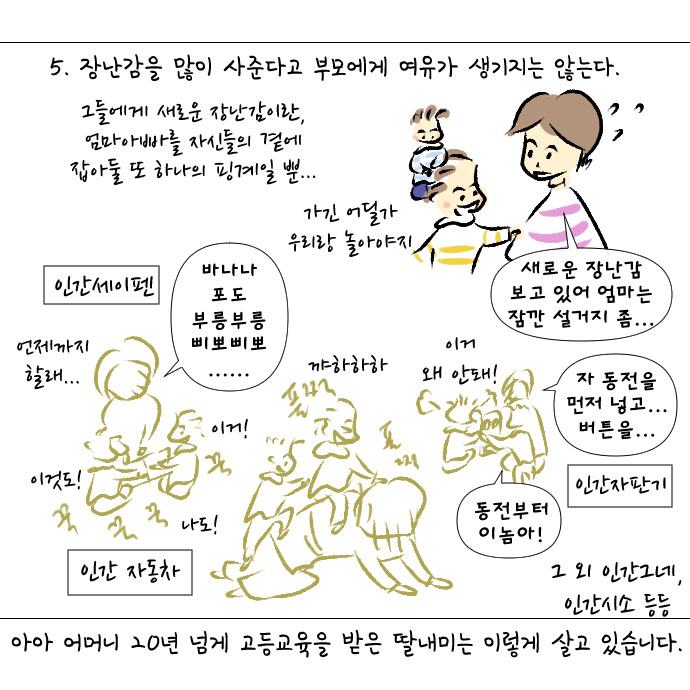 5. 장난감을 많이 사준다고 부모에게 여유가 생기지는 않는다.
그들에게 새로운 장난감이란,
엄마아빠를 자신들의 곁에
잡아둘 또 하나의 핑계일 뿐...
가긴 어딜가
우리랑 놀아야지
새로운 장난감
보고 있어 엄마는
잠깐 설거지 좀...
인간세이펜
바나나
포도
부릉부릉
삐뽀삐뽀
......
언제까지
할래...
이거!
이것도!
나도!
꾹
꾹
꾹
꾹
인간 자동차
꺄하하하
푬찍
푬
찍
이거
왜 안돼!
자 동전을
먼저 넣고...
버튼을...
동전부터
이놈아!
인간자판기
그 외 인간그네,
인간시소 등등
아아 어머니 20년 넘게 고등교육을 받은 딸내미는 이렇게 살고 있습니다.